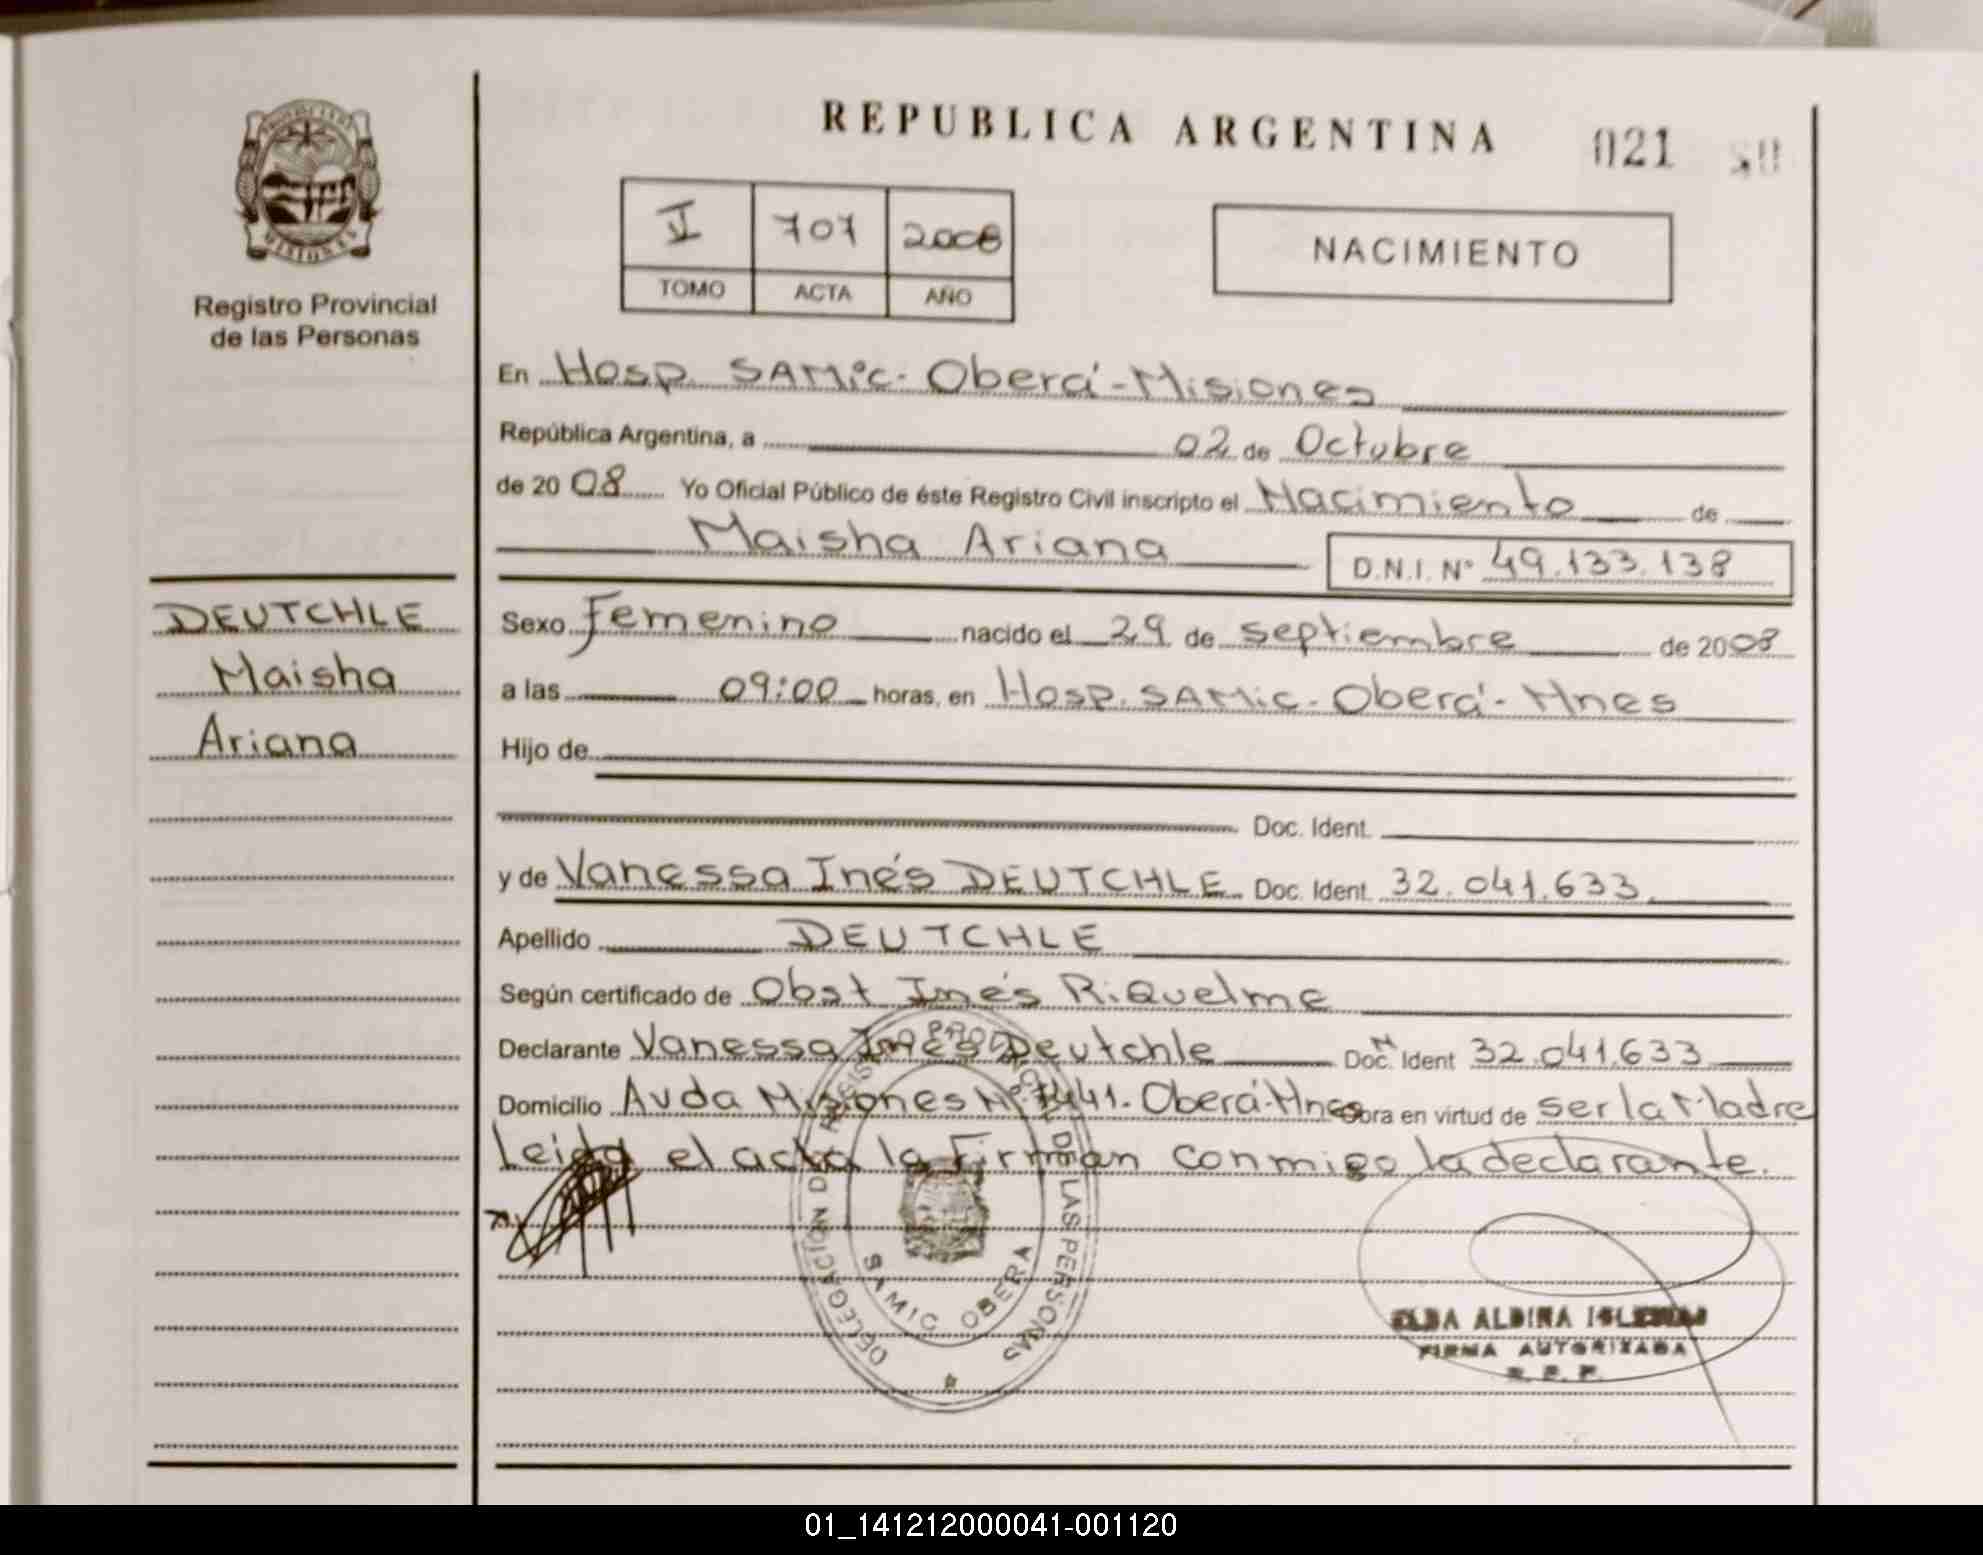 REPUBLICA ARGENTINA
021
PROVINCIA
MISIONES
Registro Provincial
de las Personas
V 707 2008
TOMO ACTA AÑO
NACIMIENTO
En Hosp. SAMic - Oberá - Misiones
República Argentina, a 02 de Octubre
de 2008 Yo Oficial Público de éste Registro Civil inscripto el Nacimiento de
Maisha Ariana D.N.I. Nº 49.133.138
DEUTCHLE
Maisha
Ariana
Sexo Femenino nacido el 29 de septiembre de 2008
a las 09:00 horas, en Hosp. SAMic - Oberá - Mnes
Hijo de
Doc. Ident.
y de Vanessa Inés DEUTCHLE Doc. Ident. 32.041.633
Apellido DEUTCHLE
Según certificado de Obst Inés Riquelme
Declarante Vanessa Inés Deutchle Doc. Ident 32.041.633
Domicilio Avda Misiones Nº 1441 - Oberá - Mnes obra en virtud de ser la Madre
Leida el acta la Firman conmigo la declarante.
DELEGACION DEL REGISTRO PROVINCIAL DE LAS PERSONAS
SAMIC OBERA
ELBA ALBINA IGLESIAS
FIRMA AUTORIZADA
R. P. P.
01_141212000041-001120